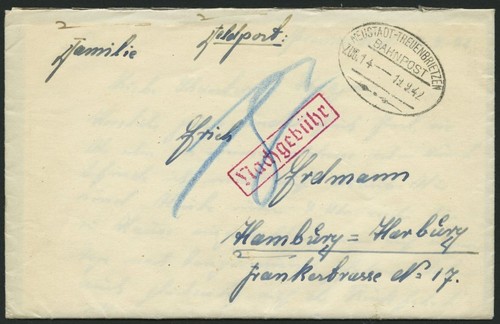 Familie Feldpost:
NEUSTADT-TREUENBRIETZEN
BAHNPOST
ZUG 14 19.9.42
Erich Erdmann
Nachgebühr
Hamburg = Harburg
Frankerstrasse No 17.